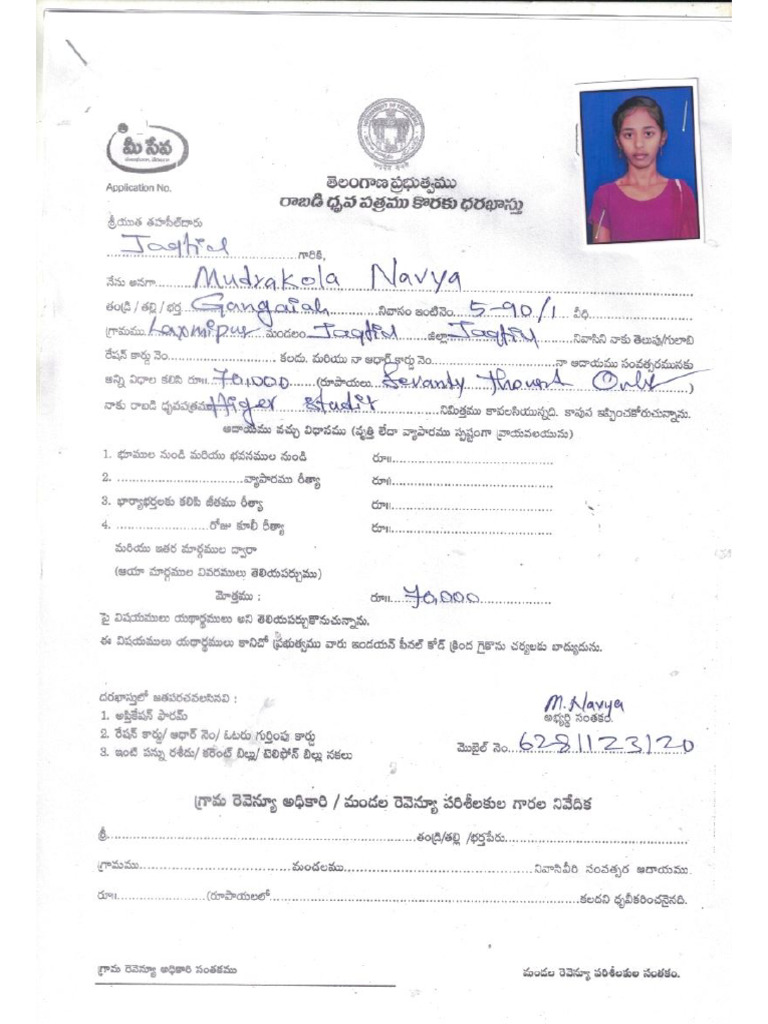 మీ సేవ
Application No.
తెలంగాణ ప్రభుత్వము
రాబడి ధృవ పత్రము కొరకు ధరఖాస్తు
శ్రీయుత తహసీల్‌దారు
Jagtial గారికి,
నేను అనగా Mudrakola Navya
తండ్రి / తల్లి / భర్త Gangaiah నివాసం ఇంటినెం. 5-90/1 వీధి
గ్రామము Laxmipur మండలం Jagtial జిల్లా Jagtial నివాసిని నాకు తెలుపు/గులాబి
రేషన్ కార్డు నెం. కలదు. మరియు నా ఆధార్ కార్డు నెం. నా ఆదాయము సంవత్సరమునకు
అన్ని విధాల కలిసి రూ॥. 70,000 (రూపాయలు Seventy Thousand Only)
నాకు రాబడి ధృవపత్రము Higer Studit నిమిత్తము కావలసియున్నది. కావున ఇప్పించకోరుచున్నాను.
ఆదాయము వచ్చు విధానము (వృత్తి లేదా వ్యాపారము స్పష్టంగా వ్రాయవలయును)
1. భూముల నుండి మరియు భవనముల నుండి రూ॥
2. వ్యాపారము రీత్యా రూ॥
3. భార్యాభర్తలకు కలిపి జీతము రీత్యా రూ॥
4. రోజు కూలీ రీత్యా రూ॥
మరియు ఇతర మార్గముల ద్వారా
(ఆయా మార్గముల వివరములు తెలియపర్చుము)
మోత్తము : రూ॥ 70,000
పై విషయములు యథార్థములు అని తెలియపర్చుకొనుచున్నాను.
ఈ విషయములు యథార్థములు కానిచో ప్రభుత్వము వారు ఇండయన్ పీనల్ కోడ్ క్రింద గైకొను చర్యలకు బాద్యుడును.
దరఖాస్తులో జతపరచవలసినవి :
M. Navya
1. అప్లికేషన్ ఫారమ్ అభ్యర్థి సంతకం.
2. రేషన్ కార్డు/ ఆధార్ నెం/ ఓటరు గుర్తింపు కార్డు
మొబైల్ నెం. 6281123120
3. ఇంటి పన్ను రశీదు/ కరెంట్ బిల్లు/ టెలిఫోన్ బిల్లు నకలు
గ్రామ రెవెన్యూ అధికారి / మండల రెవెన్యూ పరిశీలకుల గారల నివేదిక
శ్రీ తండ్రి/తల్లి /భర్తపేరు
గ్రామము మండలము నివాసివీరి సంవత్సర ఆదాయము.
రూ॥ (రూపాయలలో కలదని ధృవీకరించనైనది.
గ్రామ రెవెన్యూ అధికారి సంతకము మండల రెవెన్యూ పరిశీలకుల సంతకం.